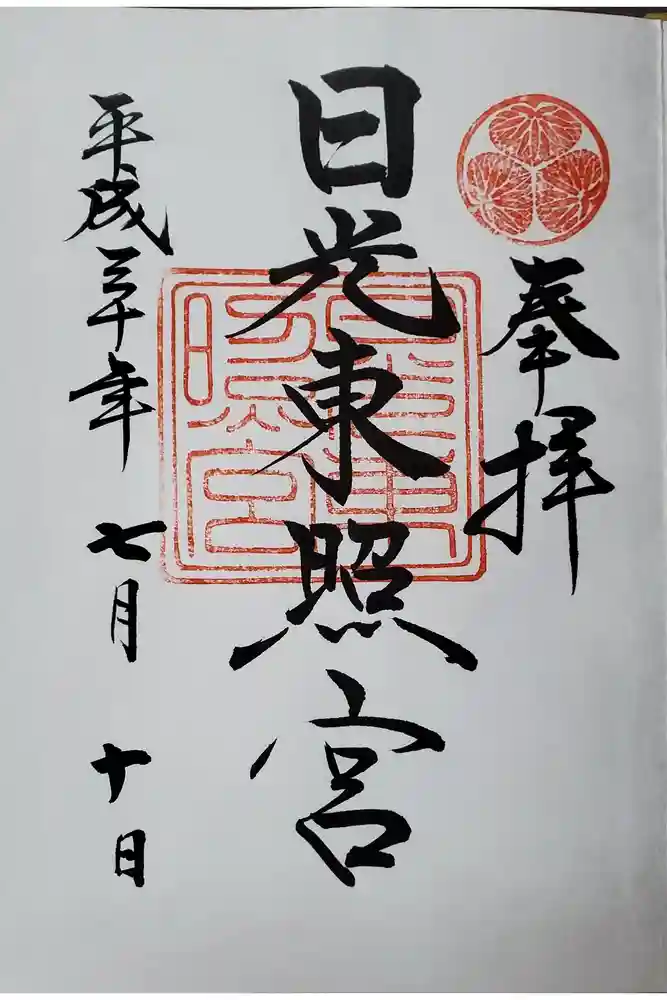 奉拝
日光東照宮
平成三十年 七月 十日
日光東照宮